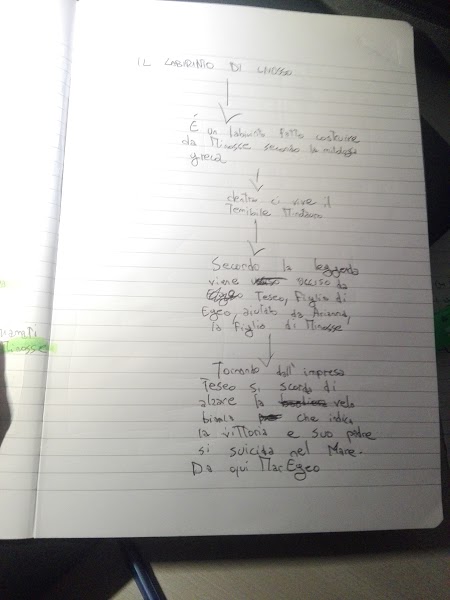 IL LABIRINTO DI CNOSSO
È un labirinto fatto costruire
da Minosse secondo la mitologia
greca
dentro ci vive il
Temibile Minotauro
Secondo la leggenda
viene ucciso da
Teseo, figlio di
Egeo, aiutato da Arianna,
la figlia di Minosse
Tornando dall'impresa
Teseo si scorda di
alzare la vela
bianca che indica
la vittoria e suo padre
si suicida nel Mare.
Da qui Mar Egeo
Minosse